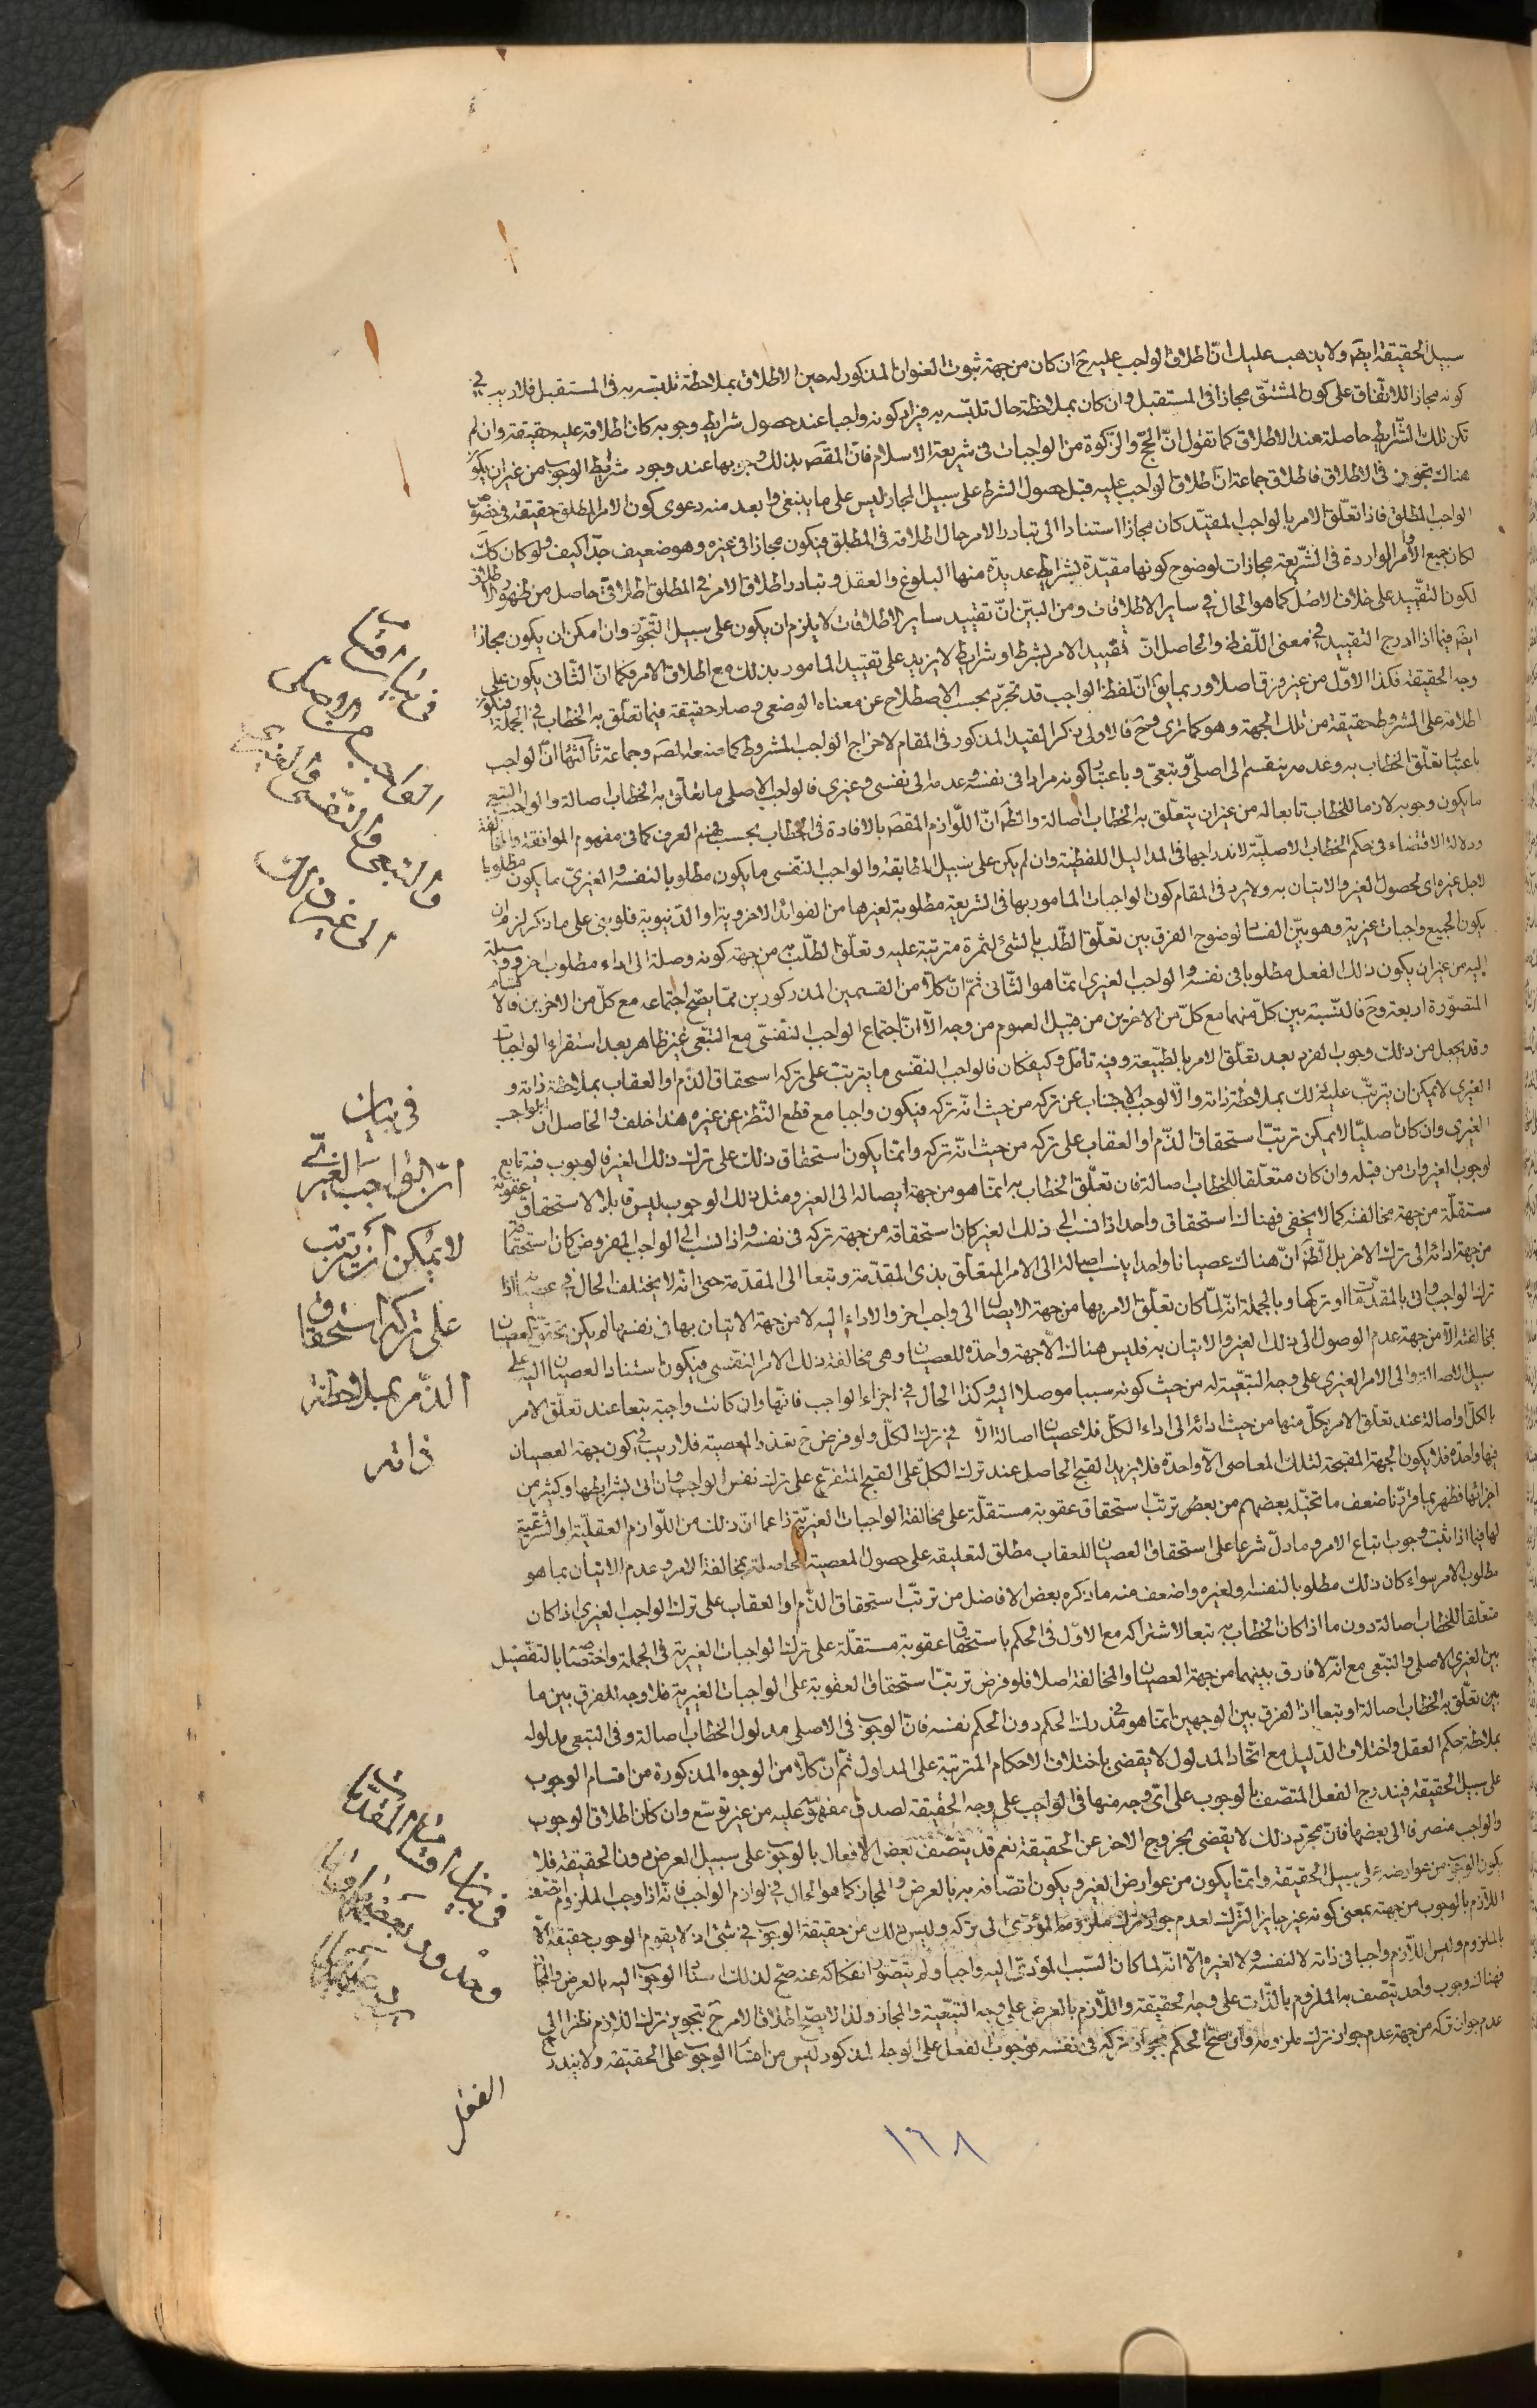 سبيل الحقيقة ايضه ولا يذهب عليك انّ اطلاق الواجب عليه ح ان كان من جهة ثبوت العنوان المذكور له حين الاطلاق بملاحظة تلبّسه به في المستقبل فلا ريب في
كونه مجازا للاتفاق على كون المشتقّ مجازا في المستقبل وان كان بملاحظة حال تلبّسه به فيراد كونه واجبا عند حصول شرايط وجوبه كان اطلاقه عليه حقيقة وان لم
تكن تلك الشّرايط حاصلة عند الاطلاق كما تقول انّ الحجّ والزّكوة من الواجبات في شريعة الاسلام فانّ المقصه بذلك وجوبها عند وجود شرايط الوجوب من غير ان يكون
هناك تجوّز في الاطلاق فاطلاق جماعة انّ اطلاق الواجب عليه قبل حصول الشرط على سبيل المجاز ليس على ما ينبغي وابعد منه دعوى كون الامر المطلق حقيقة في خصوص
الواجب المطلق فاذا تعلّق الامر بالواجب المقيّد كان مجازا استنادا الى تبادر الامر حال اطلاقه في المطلق فيكون مجازا في غيره وهو ضعيف جدّا كيف ولو كان كك
لكان جميع الاوامر الواردة في الشّريعة مجازات لوضوح كونها مقيّدة بشرايط عديدة منها البلوغ والعقل وتبادر اطلاق الامر في المطلق اطلاقيّ حاصل من ظهور الاطلاق
لكون التقييد على خلاف الاصل كما هو الحال في ساير الاطلاقات ومن البيّن انّ تقييد ساير الاطلاقات لا يلزم ان يكون على سبيل التّجوّز وان امكن ان يكون مجازا
ايضه فيما اذا ادرج التقييد في معنى اللّفظ والحاصل انّ تقييد الامر بشرط او شرايط لا يزيد على تقييد المامور بذلك مع اطلاق الامر فكما انّ الثّاني يكون على
وجه الحقيقة فكذا الاوّل من غير فرق اصلا وربما يق انّ لفظ الواجب قد تجرّد بحسب الاصطلاح عن معناه الوضعي وصار حقيقة فيما تعلّق به الخطاب في الجملة فيكون
اطلاقه على المشروط حقيقة من تلك الجهة وهو كما ترى وح فالاولى ذكر القيد المذكور في المقام لاخراج الواجب المشروط كما صنعه المصه وجماعة ثالثها انّ الواجب
باعتبار تعلّق الخطاب به وعدمه ينقسم الى اصليّ وتبعيّ وباعتبار كونه مرادا في نفسه وعدمه الى نفسي وغيري فالواجب الاصلي ما تعلّق به الخطاب اصالة والواجب التبعي
ما يكون وجوبه لازما للخطاب تابعا له من غير ان يتعلّق به الخطاب اصالة والظّ انّ اللّوازم المقصه بالافادة في الخطاب بحسب فهم العرف كما في مفهوم الموافقة والمخالفة
ودلالة الاقتضاء في حكم الخطاب الاصليّة لاندراجها في المداليل اللفظية وان لم يكن على سبيل المطابقة والواجب النّفسي ما يكون مطلوبا لنفسه والغيريّ ما يكون مطلوبا
لاجل غيره اى لحصول الغير والاتيان به ولا يرد في المقام كون الواجبات المامور بها في الشريعة مطلوبة لغيرها من الفوائد الاخروية او الدّنيوية فلو بنى على ما ذكر لزم ان
يكون الجميع واجبات غيرية وهو بيّن الفساد لوضوح الفرق بين تعلّق الطّلب بالشئ لثمرة مترتبة عليه وتعلّق الطّلب به من جهة كونه وصلة الى اداء مطلوب اخر ووسيلة
اليه من غير ان يكون ذلك الفعل مطلوبا في نفسه والواجب الغيري انّما هو الثّاني ثمّ انّ كلّا من القسمين المذكورين ممّا يصح اجتماعه مع كلّ من الاخرين فالاقسام
المتصوّرة اربعة وح فالنّسبة بين كلّ منهما مع كلّ من الاخرين من قبيل العموم من وجه الّا انّ اجتماع الواجب النّفسيّ مع التبعي غير ظاهر بعد استقراء الواجبات
وقد يجعل من ذلك وجوب الفرد بعد تعلّق الامر بالطبيعة وفيه تامّل وكيفكان فالواجب النّفسي ما يترتب على تركه استحقاق الذّم او العقاب بملاحظة ذاته و
الغيري لا يمكن ان يترتّب عليه ذلك بملاحظة ذاته والّا لوجب الاجتناب عن تركه من حيث انّه تركه فيكون واجبا مع قطع النّظر عن غيره هذا خلف والحاصل انّ الواجب
الغيري وان كان اصليّا لا يمكن ترتّب استحقاق الذّم او العقاب على تركه من حيث انّه تركه وانّما يكون استحقاق ذلك على ترك ذلك الغير فالوجوب فيه تابع
لوجوب الغير وات من قبله وان كان متعلّقا للخطاب اصالة فان تعلّق الخطاب به انّما هو من جهة ايصاله الى الغير ومثل ذلك الوجوب ليس قابلا لاستحقاق عقوبة
مستقلّة من جهة مخالفته كما لا يخفى فهناك استحقاق واحد اذا نسب الى ذلك الغير كان استحقاقه من جهة تركه في نفسه واذا نسب الى الواجب المفروض كان استحقاقا
من جهة ادائه الى ترك الاخر بل الظّ انّ هناك عصيانا واحدا ينسب اصالة الى الامر المتعلّق بذي المقدّمة وتبعا الى المقدّمة حتى انّه لا يختلف الحال في عصيانه اذا
ترك الواجب واتى بالمقدّمات او تركها وبالجملة انّه لمّا كان تعلّق الامر بها من جهة الايصال الى واجب اخر والاداء اليه لا من جهة الاتيان بها في نفسها لم يكن تحقّق العصيان
بمخالفته الّا من جهة عدم الوصول الى ذلك الغير والاتيان به فليس هناك الّا جهة واحدة للعصيان وهي مخالفة ذلك الامر النّفسي فيكون استناد العصيان اليه على
سبيل الاصالة والى الامر الغيري على وجه التبعيّة له من حيث كونه سببا موصلا اليه وكذا الحال في اجزاء الواجب فانّها وان كانت واجبة تبعا عند تعلّق الامر
بالكلّ واصالة عند تعلّق الامر بكلّ منها من حيث ادائه الى اداء الكلّ فلا عصيان اصالة الّا في ترك الكلّ ولو فرض ح تعدّد المعصية فلا ريب في كون جهة العصيان
فيها واحدة فلا يكون الجهة المقبحة لتلك المعاصي الّا واحدة فلا يزيد القبح الحاصل عند ترك الكلّ على القبح المتفرّع على ترك نفس الواجب وان اتى بشرايطها وكثير من
اجزائها فظهر بما قرّرنا ضعف ما تخيّل بعضهم من بعض ترتّب استحقاق عقوبة مستقلّة على مخالفة الواجبات الغيريّة زاعما انّ ذلك من اللّوازم العقليّة او الشّرعيّة
لها فيما اذا ثبت وجوب اتباع الامر وما دلّ شرعا على استحقاق العصيان للعقاب مطلق لتعليقه على حصول المعصية الحاصلة بمخالفة الامر وعدم الاتيان بما هو
مطلوب الامر سواء كان ذلك مطلوبا لنفسه او لغيره واضعف منه ما ذكره بعض الافاضل من ترتّب استحقاق الذّم او العقاب على ترك الواجب الغيري اذا كان
متعلّقا للخطاب اصالة دون ما اذا كان الخطاب به تبعا لاشتراكه مع الاوّل في الحكم باستحقاق عقوبة مستقلّة على ترك الواجبات الغيرية في الجملة واختصاصه بالتفصيل
بين الغيري الاصلي والتّبعي مع انّه لا فارق بينهما من جهة العصيان والمخالفة اصلا فلو فرض ترتّب استحقاق العقوبة على الواجبات الغيرية فلا وجه للفرق بين ما
بين تعلّق به الخطاب اصالة او تبعا اذ الفرق بين الوجهين انّما هو في مدرك الحكم دون الحكم نفسه فانّ الوجوب في الاصلي مدلول الخطاب اصالة وفي التبعي مدلوله
بملاحظة حكم العقل واختلاف الدّليل مع اتّحاد المدلول لا يقضي باختلاف الاحكام المترتبة على المدلول ثمّ انّ كلّا من الوجوه المذكورة من اقسام الوجوب
على سبيل الحقيقة فيندرج الفعل المتّصف بالوجوب على اىّ وجه منها في الواجب على وجه الحقيقة لصدق مفهومه عليه من غير توسّع وان كان اطلاق الوجوب
والواجب منصرفا الى بعضها فانّ مجرّد ذلك لا يقضي بخروج الاخر عن الحقيقة نعم قد يتّصف بعض الافعال بالوجوب على سبيل العرض دون الحقيقة فلا
يكون الوجوب من عوارضه على سبيل الحقيقة وانّما يكون من عوارض الغير ويكون اتصافه به بالعرض والمجاز كما هو الحال في لوازم الواجب فانّه اذا وجب الملزوم اتّصف
اللّازم بالوجوب من جهته بمعنى كونه غير جايز التّرك لعدم جواز ترك ملزومه المؤدّى الى تركه وليس ذلك من حقيقة الوجوب في شئ اذ لا يقوم الوجوب حقيقة الّا
بالملزوم وليس اللّازم واجبا في ذاته لا لنفسه ولا لغيره الّا انّه لما كان السّبب المؤدّى اليه واجبا ولم يتصوّر انفكاكه عنه صحّ لذلك اسناد الوجوب اليه بالعرض والمجاز
فهناك وجوب واحد يتّصف به الملزوم بالذّات على وجه الحقيقة واللّازم بالعرض على وجه التّبعيّة والمجاز ولذا لا يصحّ اطلاق الامر ح بتجويز ترك اللّازم نظرا الى
عدم جواز تركه من جهة عدم جواز ترك ملزومه وان صحّ الحكم بجواز تركه في نفسه فوجوب الفعل على الوجه المذكور ليس من اقسام الوجوب على الحقيقة ولا يندرج
الفعل
في بيان اقسام
الواجب
والتبعي والنّفسي والغيري
الى غير ذلك
في بيان
انّ الواجب الغيريّ
لا يمكن ان يترتب
على تركه استحقاق
الذّم بملاحظة
ذاته
في بيان اقسام المقدّمات
١٦٨